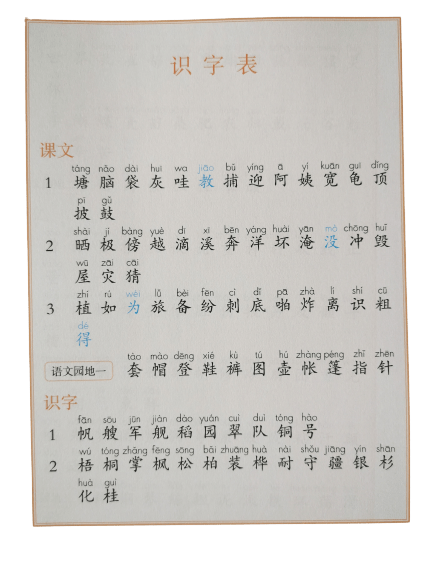 识字表
课文
táng nǎo dài huī wa jiāo bǔ yíng ā yí kuān guī dǐng
1 塘 脑 袋 灰 哇 教 捕 迎 阿 姨 宽 龟 顶
pī gǔ
披 鼓
shài jí bàng yuè dī xī bēn yáng huài yān mò chōng huǐ
2 晒 极 傍 越 滴 溪 奔 洋 坏 淹 没 冲 毁
wū zāi cāi
屋 灾 猜
zhí rú wéi lǚ bèi fēn cì dǐ pā zhà lí shí cū
3 植 如 为 旅 备 纷 刺 底 啪 炸 离 识 粗
dé
得
tào mào dēng xié kù tú hú zhàng péng zhǐ zhēn
语文园地一 套 帽 登 鞋 裤 图 壶 帐 篷 指 针
识字
fān sōu jūn jiàn dào yuán cuì duì tóng hào
1 帆 艘 军 舰 稻 园 翠 队 铜 号
wú tóng zhǎng fēng sōng bǎi zhuāng huà nài shǒu jiāng yín shān
2 梧 桐 掌 枫 松 柏 装 桦 耐 守 疆 银 杉
huà guì
化 桂